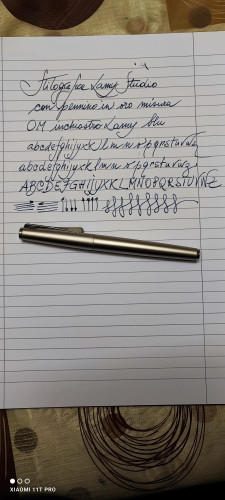 Stilografica Lamy Studio
con pennino in oro misura
OM inchiostro Lamy blu
abcdefghijyxklmnopqrstuvwz
abcdefghijyxklmnopqrstuvwz
ABCDEFGHIJYXKLMNOPQRSTUVWZ
XIAOMI 11T PRO